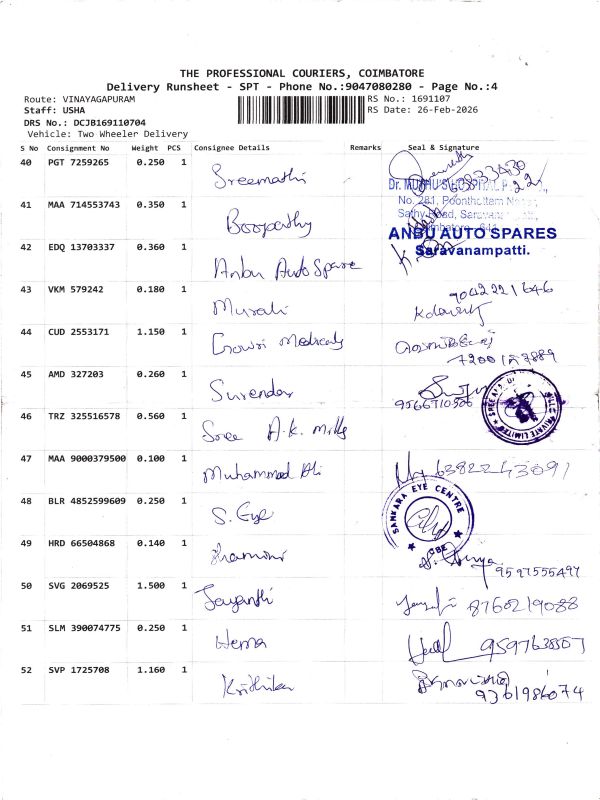 THE PROFESSIONAL COURIERS, COIMBATORE
Delivery Runsheet - SPT - Phone No.:9047080280 - Page No.:4
Route: VINAYAGAPURAM RS No.: 1691107
Staff: USHA RS Date: 26-Feb-2026
DRS No.: DCJB169110704
Vehicle: Two Wheeler Delivery
S No Consignment No Weight PCS Consignee Details Remarks Seal & Signature
40 PGT 7259265 0.250 1 Sreemathi
Dr. MUTHU'S HOSPITAL
41 MAA 714553743 0.350 1 Boopathy No. 281, Poonthottam
Sathy Road, Saravanam
42 EDQ 13703337 0.360 1 Anbu Auto Spare ANBU AUTO SPARES
Saravanampatti.
43 VKM 579242 0.180 1 Murali 9042221646
44 CUD 2553171 1.150 1 Gowri Medicals
45 AMD 327203 0.260 1 Surendar 9566710506
46 TRZ 325516578 0.560 1 Sree A.K. Mills PRIVATE LIMITED
47 MAA 9000379500 0.100 1 Muhammad Ali 6382243091
48 BLR 4852599609 0.250 1 S. Eye SANKARA EYE CENTRE CBE
49 HRD 66504868 0.140 1 9597555497
50 SVG 2069525 1.500 1 Jayanthi 8760219088
51 SLM 390074775 0.250 1 Hema
52 SVP 1725708 1.160 1 Krithika 9361986074